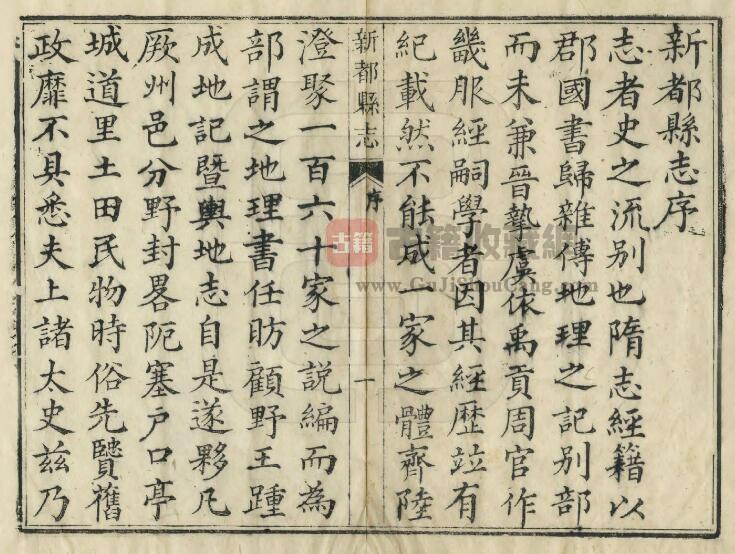 新都縣志序
志者史之流别也隋志經籍以
郡國書歸雜傳地理之記别部
而未兼晉摯虞依禹貢周官作
畿服經嗣學者因其經歷竝有
紀載然不能成一家之體齊陸
新都縣志 序 一
澄聚一百六十家之説編而為
部謂之地理書任昉顧野王踵
成地記暨輿地志自是遂夥凡
厥州邑分野封畧阨塞户口亭
城道里土田民物時俗先賢舊
政靡不具悉夫上諸太史兹乃
古籍
古籍收藏網
www.GuJiShouCang.com